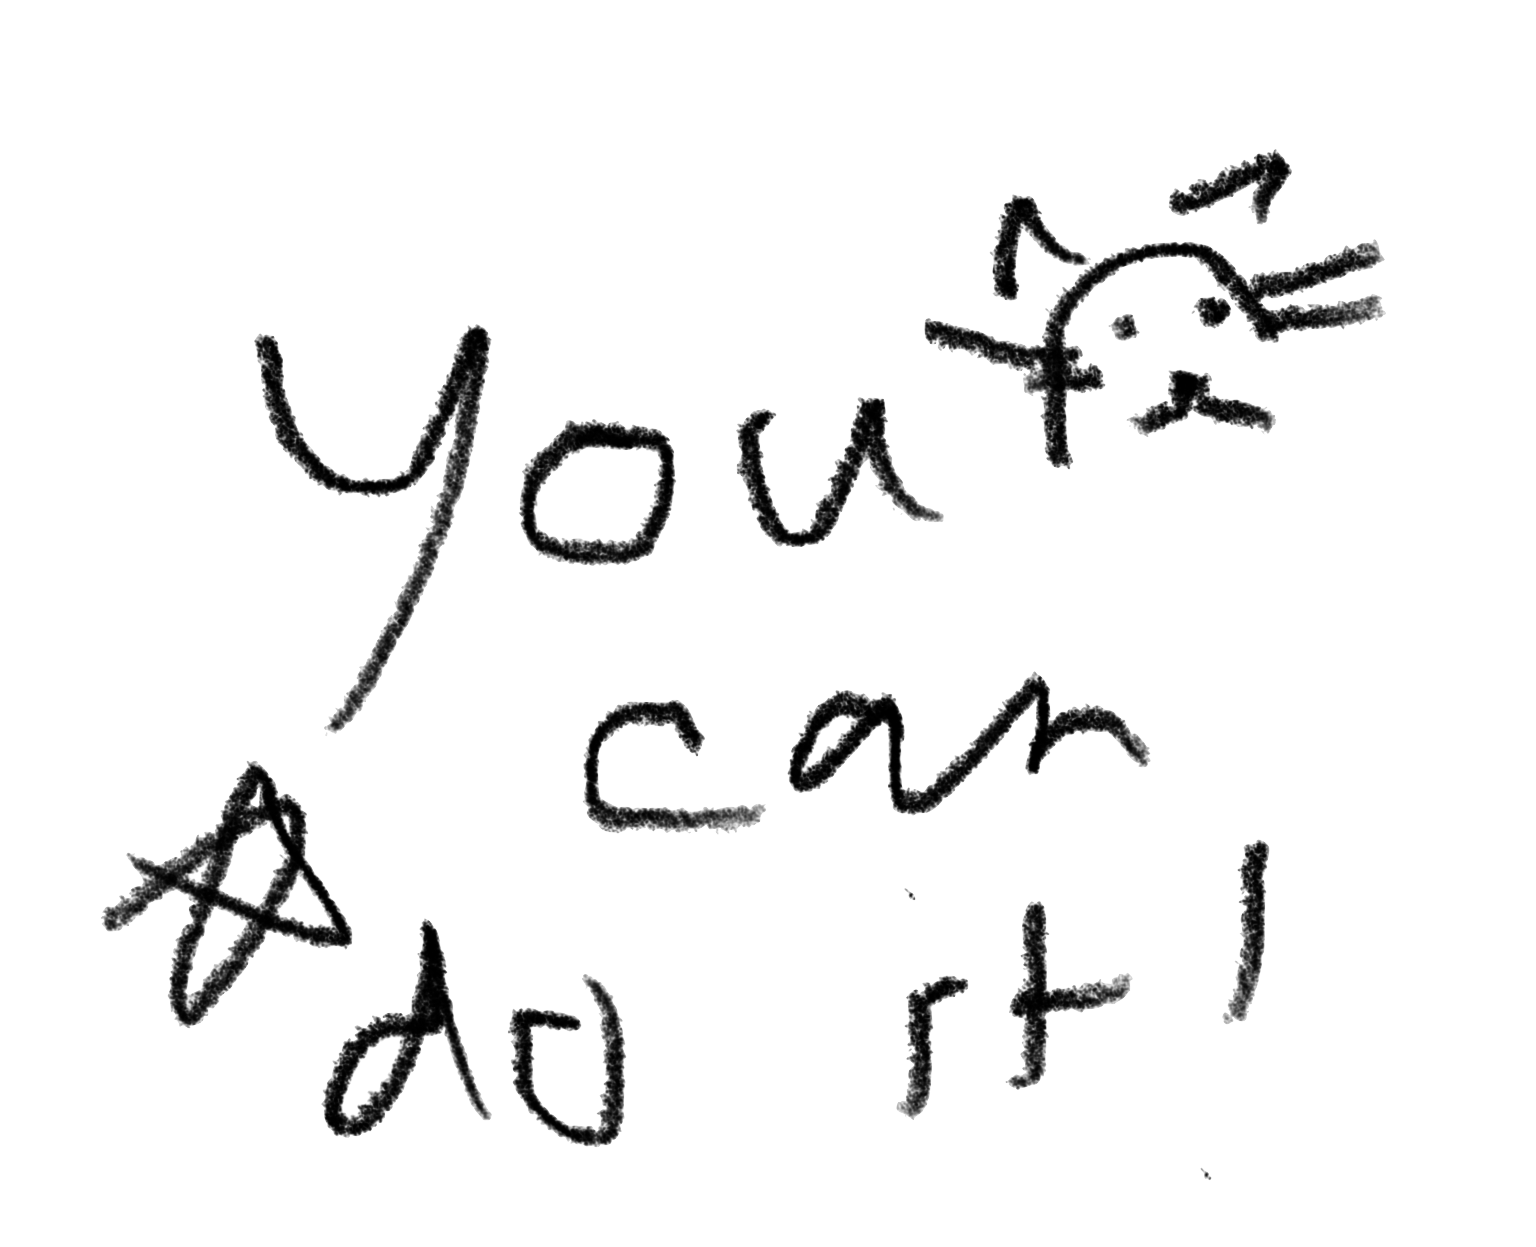 you
can
do it!